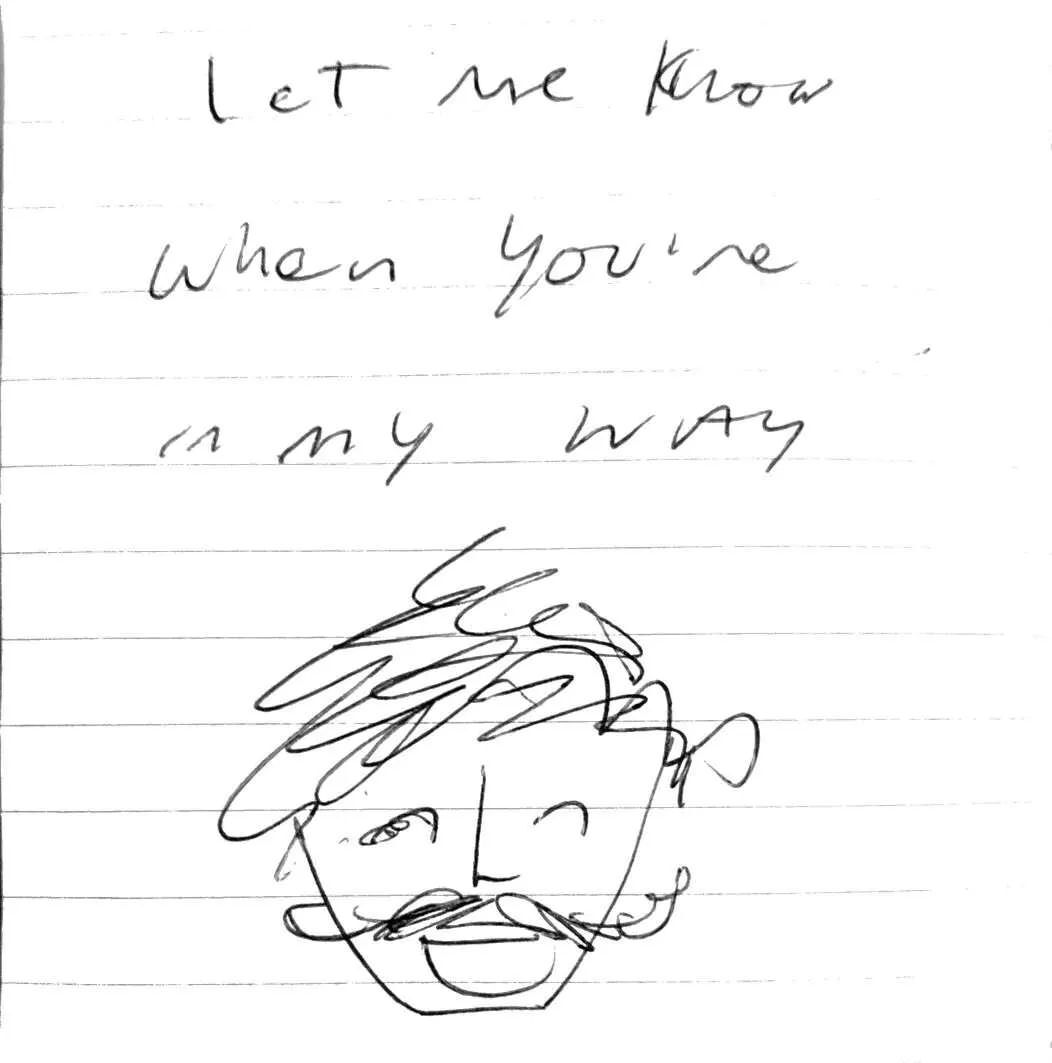 Let me know
when you're
in my way